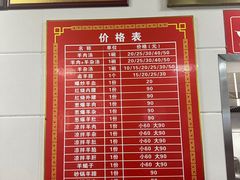 价格表
名称 单位 价格（元）
羊肉汤 1碗 20/25/30/40/50
羊肉+羊杂汤 1碗 20/25/30/40/50
羊杂汤 1碗 10/15/20/25/30/50
卤羊蹄 1个 15/20/25/30
爆炒羊血 1份 20
红烧内腰 1份 90
红烧羊腩 1份 90
葱爆羊肚 1份 90
葱爆羊肉 1份 90
凉拌羊肉 1份 小60 大90
凉拌羊杂 1份 小60 大90
凉拌羊脸 1份 小60 大90
凉拌羊肚 1份 小60 大90
凉拌羊肝 1份 小60 大90
羊蝎子 1份 小60 大90
砂锅羊排 1份 90